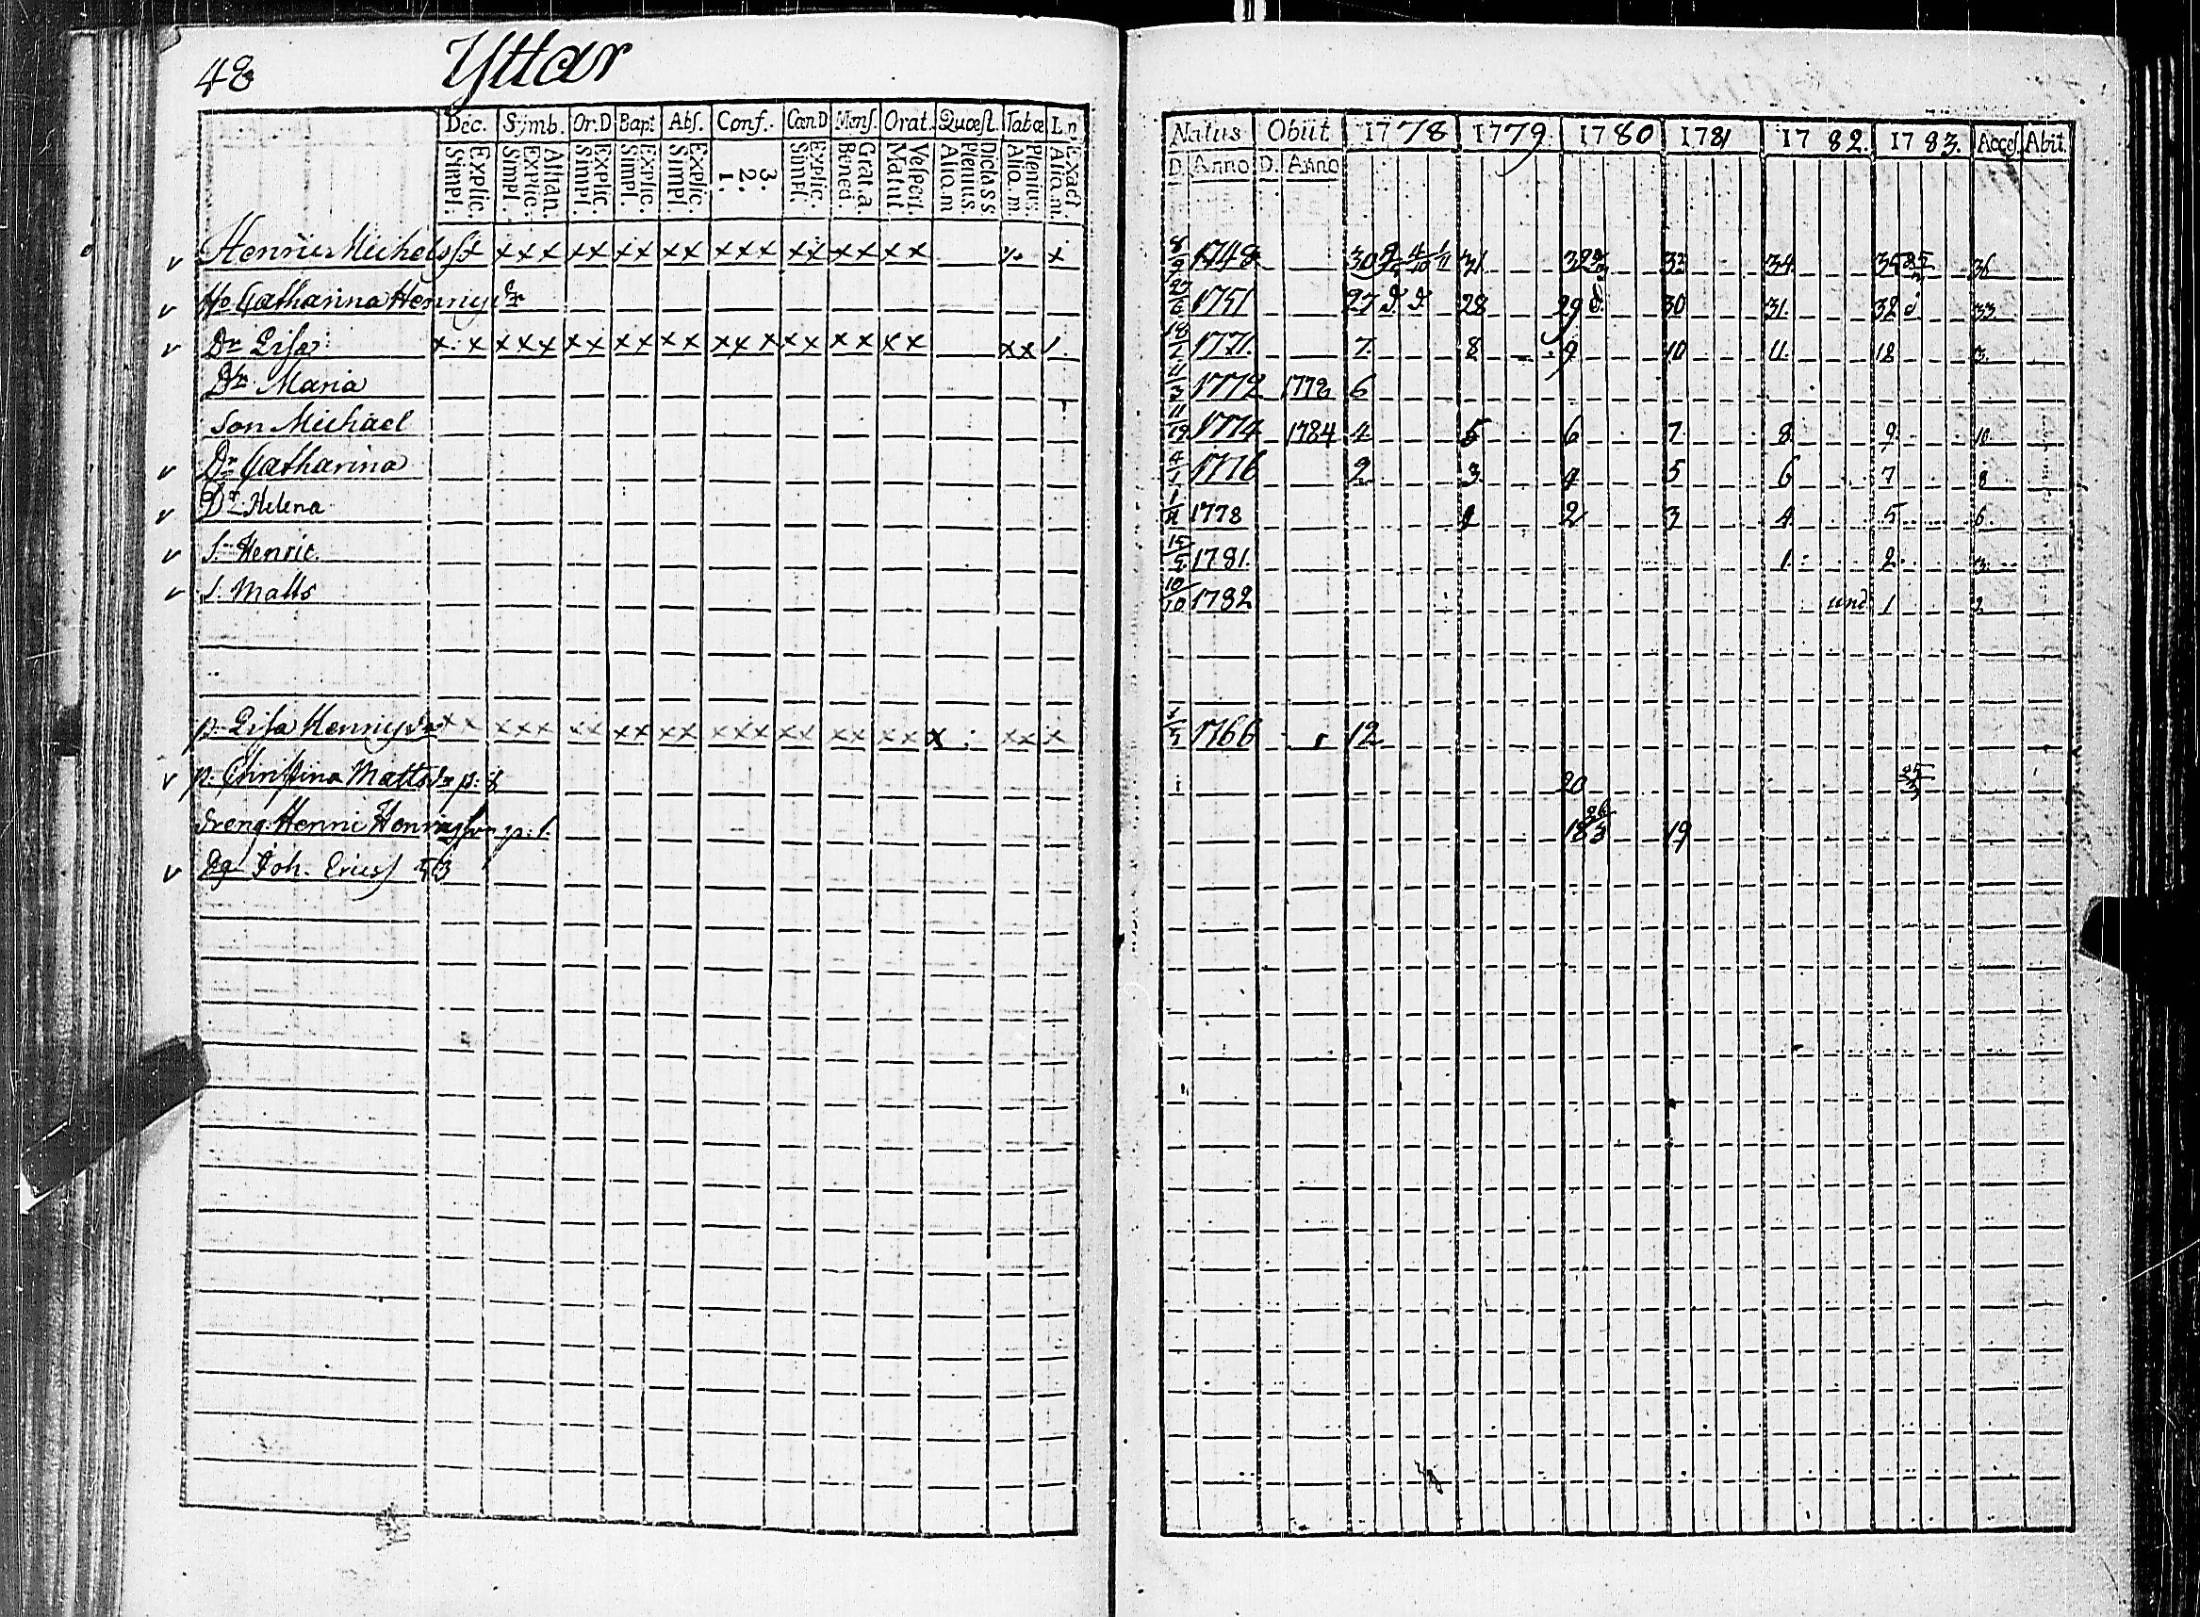 48 Yttar
Dec. Symb. Or.D Bapt Abs. Conf. Cœn D Mens. Orat. Quæst. Tabæ L.n
Simpl. Explic. Simpl. Explic. Athan. Simpl. Explic. Simpl. Explic. Simpl. Explic. 1. 2. 3. Simpl. Explic. Bened. Grat. a. Matut. Vespert. Alio. m Plenius. Dicta SS Alio. m. Plenius. Alia. m. Exact.
Henric Michelss x x x x x x x x x x x x x x x x x x x
Hu Catharina Hennygdr
Dr Lisa x x x x x x x x x x x x x x x x x x x x x
Dr Maria
Son Michael
Dr Catharina
Dr Helena
S. Henric
S. Matts
p. Lisa Hennygdr x x x x x x x x x x x x x x x x x x x x x x x
p. Christina Mattsdr p: 8
Dreng Henric
Dg Joh. Ericss 53
Natus Obiit 1778 1779. 1780 1781 1782. 1783. Acces. Abit.
D. Anno D. Anno
8/9 1748 30 31 32 33 34 35 36
1751 27 d. d 28 29 d. 30 31. 32 d 33
1771. 7. 8 9 10 11. 12 3.
1772 1778 6
11/19 1774 1784 4 5 6 7 8 9 10
1776 2 3 4 5 6 7 8
1778 1 2 3 4 5 6
15/5 1781. 1 2 3.
10/10 1782 und 1 2
1766 12
20
18 26/3 19